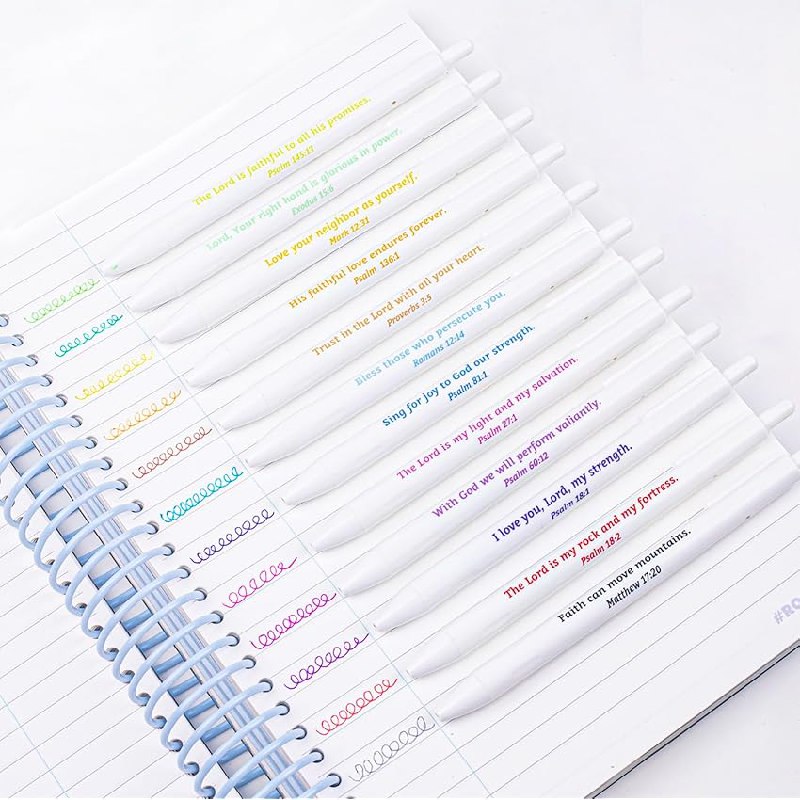 The Lord is faithful to all his promises.
Psalm 145:17
Lord, Your right hand is glorious in power.
Exodus 15:6
Love your neighbor as yourself.
Mark 12:31
His faithful love endures forever.
Psalm 136:1
Trust in the Lord with all your heart.
Proverbs 3:5
Bless those who persecute you.
Romans 12:14
Sing for joy to God our strength.
Psalm 81:1
The Lord is my light and my salvation.
Psalm 27:1
With God we will perform valiantly.
Psalm 60:12
I love you, Lord, my strength.
Psalm 18:1
The Lord is my rock and my fortress.
Psalm 18:2
Faith can move mountains.
Matthew 17:20
#RO